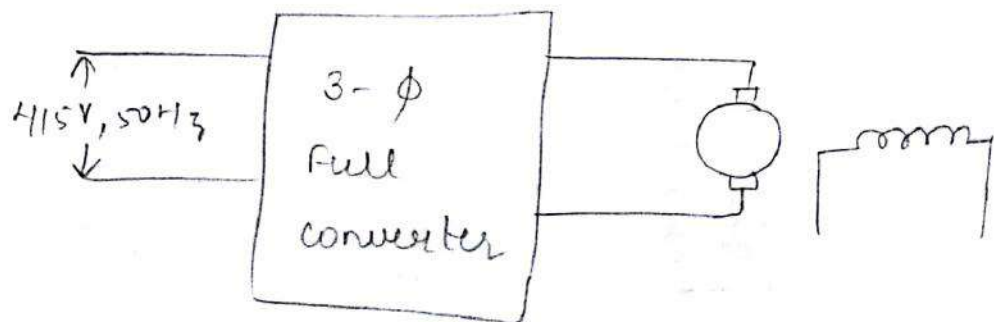 415V, 50Hz
3-ϕ
Full
converter